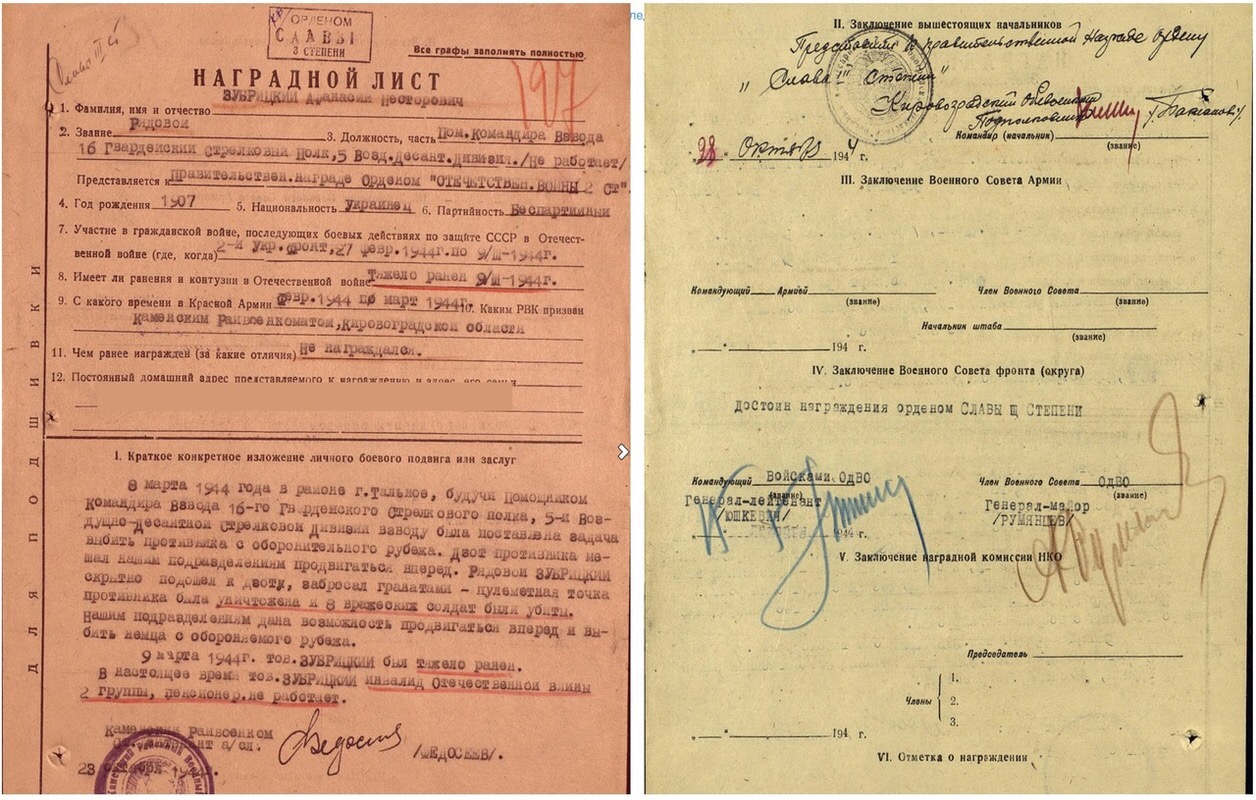 ОРДЕНОМ
СЛАВЫ
3 СТЕПЕНИ
Все графы заполнять полностью
197
НАГРАДНОЙ ЛИСТ
1. Фамилия, имя и отчество ЗУБРИЦКИЙ Афанасий Несторович
2. Звание Рядовой 3. Должность, часть Пом.Командира Взвода
16 Гвардейский Стрелковый Полк,5 Возд.Десант.Дивизии./Не работает/
Представляется к Правительствен.награде Орденом "ОТЕЧЕСТВЕН.ВОЙНЫ 2 СТ".
4. Год рождения 1907 5. Национальность Украинец 6. Партийность Беспартийный
7. Участие в гражданской войне, последующих боевых действиях по защите СССР в Отечест-
венной войне (где, когда) 2-й Укр.Фронт,27 февр.1944г.по 9/III-1944г.
8. Имеет ли ранения и контузии в Отечественной войне Тяжело ранен 9/III-1944г.
9. С какого времени в Красной Армии Февр.1944 по март 1944г. 10. Каким РВК призван
Каменским Райвоенкоматом,Кировоградской области
11. Чем ранее награжден (за какие отличия) Не награждался.
12. Постоянный домашний адрес представляемого к награждению и адрес его семьи
ДЛЯ ПОДШИВКИ
I. Краткое конкретное изложение личного боевого подвига или заслуг
8 марта 1944 года в районе г.Тальное, будучи Помощником
Командира Взвода 16-го Гварденского Стрелкового полка, 5-й Воз-
душно-Десантной Стрелковой Дивизии взводу была поставлена задача
выбить противника с оборонительного рубежа. Дзот противника ме-
шал нашим подразделениям продвигаться вперед. Рядовой ЗУБРИЦКИЙ
скрытно подошел к дзоту, забросал гранатами - пулеметная точка
противника была уничтожена и 8 вражеских солдат были убиты.
Нашим подразделениям дана возможность продвигаться вперед и вы-
бить немца с обороняемого рубежа.
9 марта 1944г. тов.ЗУБРИЦКИЙ был тяжело ранен.
В настоящее время тов.ЗУБРИЦКИЙ инвалид Отечественной войны
2 группы, пенсионер.не работает.
Каменский Райвоенком
/ФЕДОСЕЕВ/.
II. Заключение вышестоящих начальников
Представить к правительственной награде ордену
"Слава III Степени"
Кировоградский Облвоенком
Подполковник
Командир (начальник)
(звание)
28 Октября 1944 г.
III. Заключение Военного Совета Армии
Командующий Армией
(звание)
Член Военного Совета
(звание)
Начальник штаба
(звание)
„ — " 194 г.
IV. Заключение Военного Совета фронта (округа)
достоин награждения орденом СЛАВЫ Щ СТЕПЕНИ
Командующий Войсками ОдВО
(звание)
Генерал-лейтенант
/ЮШКЕВИЧ/
Член Военного Совета ОдВО
(звание)
Генерал-майор
/РУМЯНЦЕВ/
1944 г.
V. Заключение наградной комиссии НКО
Председатель
Члены
1.
2.
3.
„ — " 194 г.
VI. Отметка о награждении